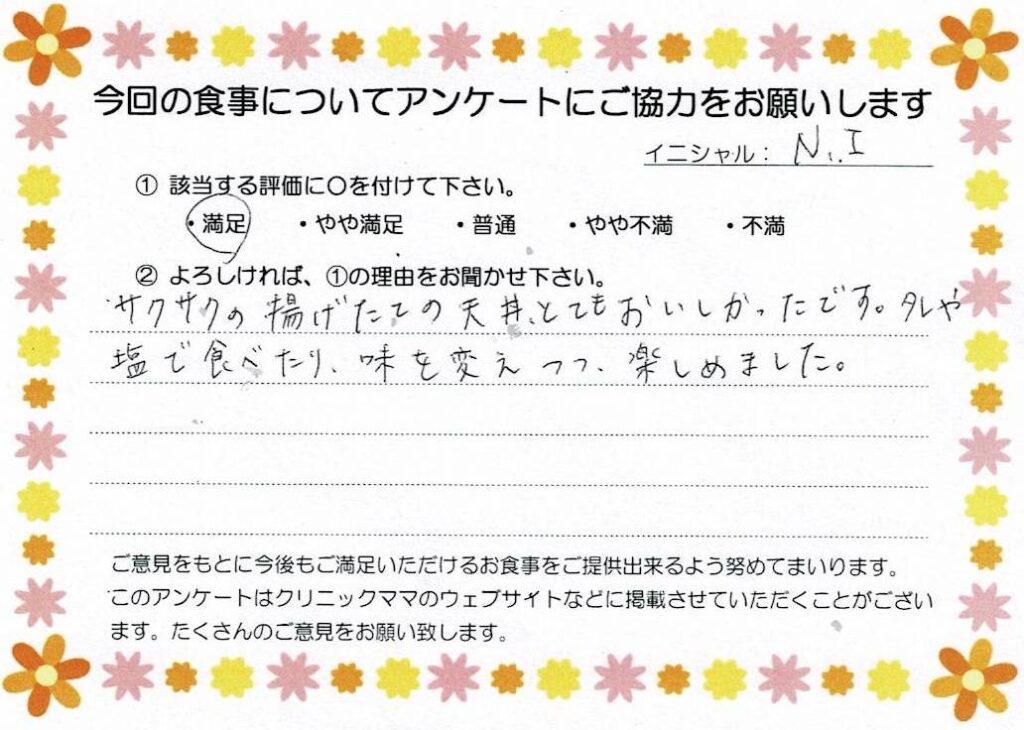 今回の食事についてアンケートにご協力をお願いします
イニシャル： N.I
① 該当する評価に〇を付けて下さい。
・満足 ・やや満足 ・普通 ・やや不満 ・不満
② よろしければ、①の理由をお聞かせ下さい。
サクサクの揚げたての天丼、とてもおいしかったです。タレや
塩で食べたり、味を変えつつ、楽しめました。
ご意見をもとに今後もご満足いただけるお食事をご提供出来るよう努めてまいります。
このアンケートはクリニックママのウェブサイトなどに掲載させていただくことがござい
ます。たくさんのご意見をお願い致します。